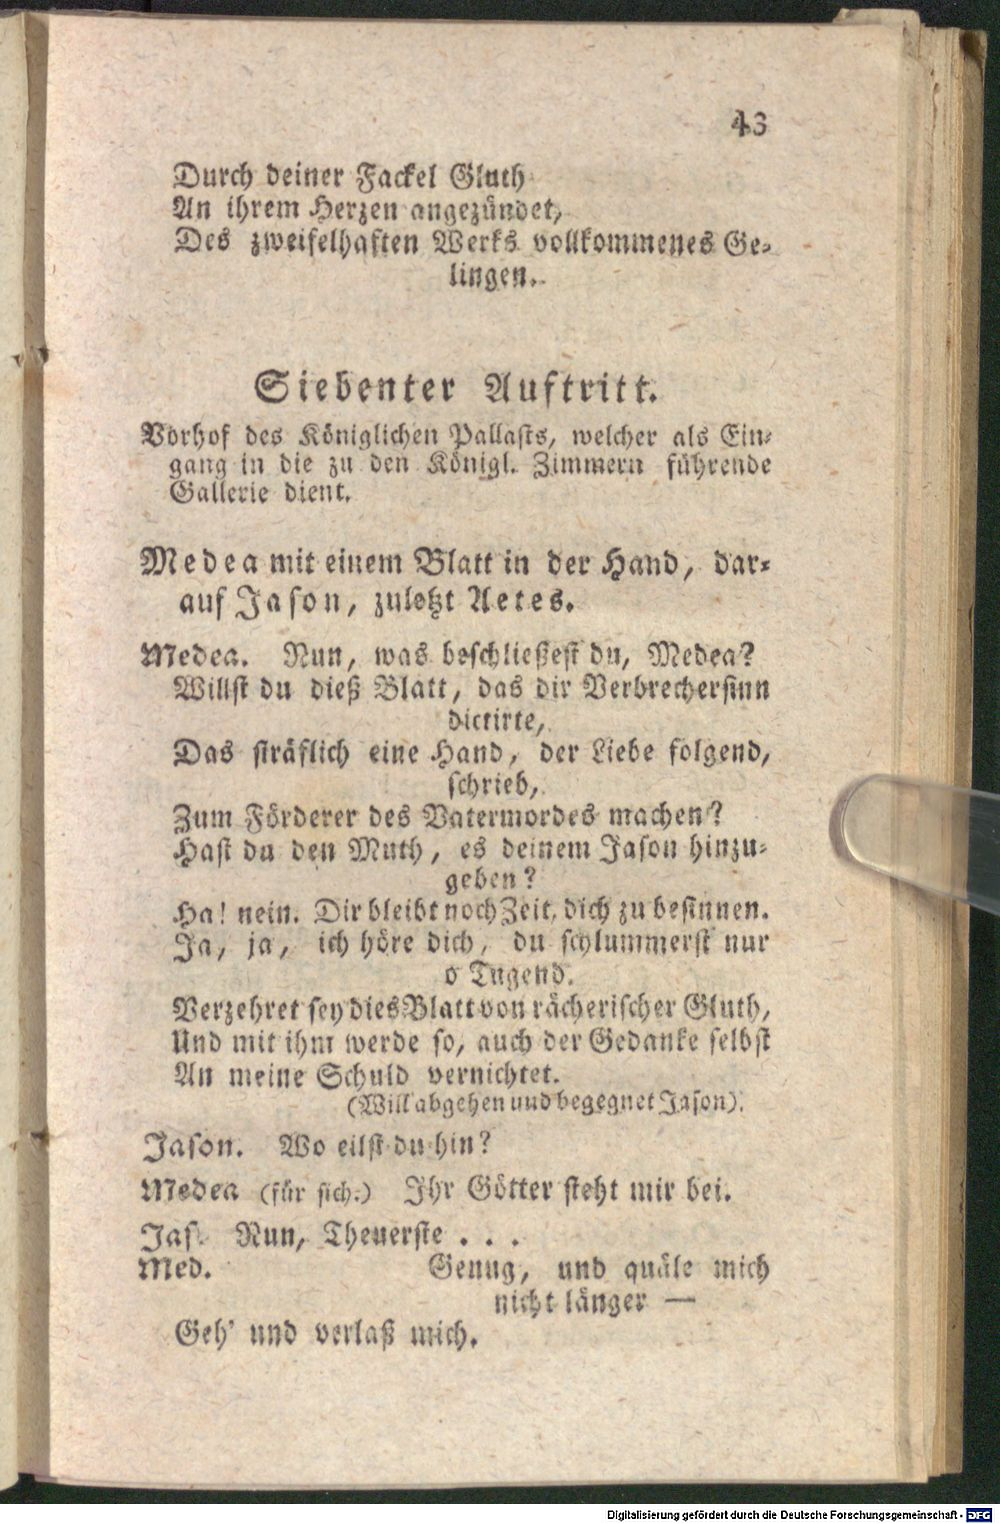 43
Durch deiner Fackel Gluth
An ihrem Herzen angezündet,
Des zweifelhaften Werks vollkommenes Ge-
lingen.
Siebenter Auftritt.
Vorhof des Königlichen Pallasts, welcher als Ein-
gang in die zu den Königl. Zimmern führende
Gallerie dient.
Medea mit einem Blatt in der Hand, dar-
auf Jason, zuletzt Aetes.
Medea. Nun, was beschließest du, Medea?
Willst du dieß Blatt, das dir Verbrechersinn
dictirte,
Das sträflich eine Hand, der Liebe folgend,
schrieb,
Zum Förderer des Vatermordes machen?
Hast du den Muth, es deinem Jason hinzu-
geben?
Ha! nein. Dir bleibt noch Zeit, dich zu besinnen.
Ja, ja, ich höre dich, du schlummerst nur
o Tugend.
Verzehret sey dies Blatt von rächerischer Gluth,
Und mit ihm werde so, auch der Gedanke selbst
An meine Schuld vernichtet.
(Will abgehen und begegnet Jason).
Jason. Wo eilst du hin?
Medea (für sich.) Ihr Götter steht mir bei.
Jas. Nun, Theuerste . . .
Med. Genug, und quäle mich
nicht länger —
Geh' und verlaß mich.
Digitalisierung gefördert durch die Deutsche Forschungsgemeinschaft - DFG